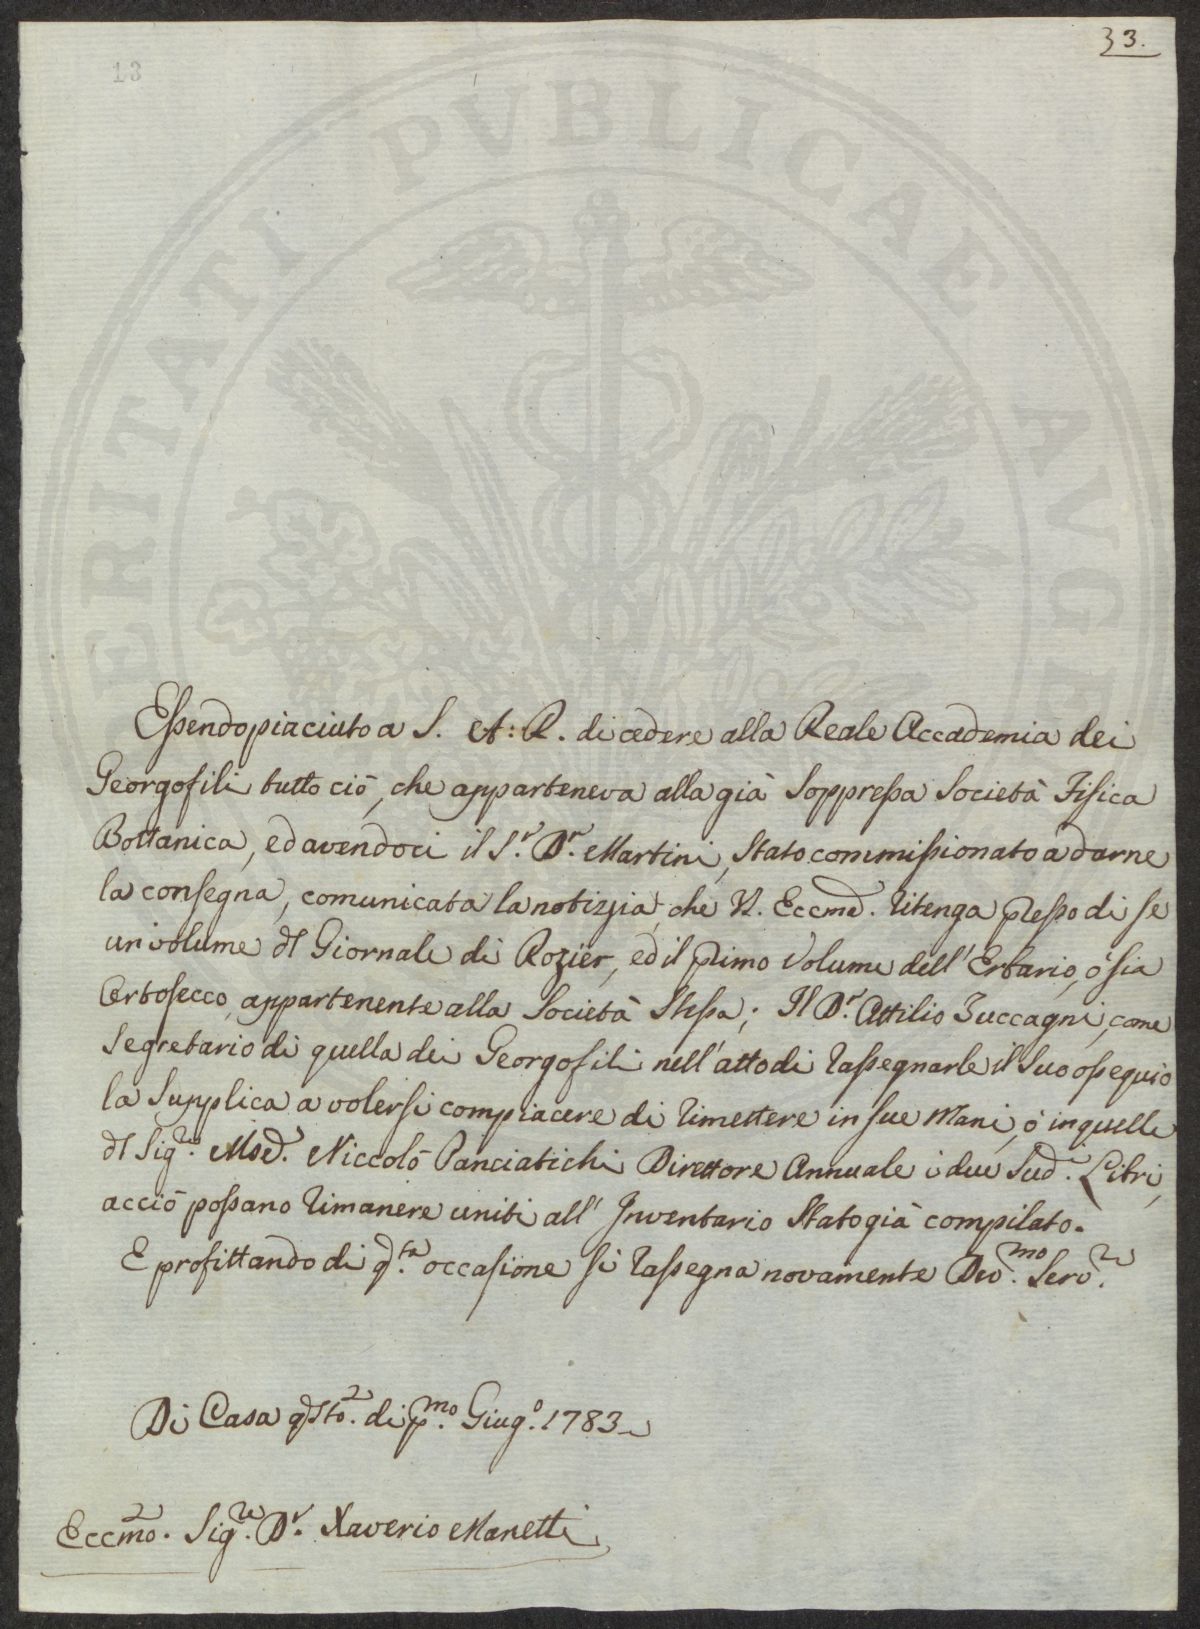 33.
13
PVBLICAE
Essendo piaciuto a S. A: R. di cedere alla Reale Accademia dei
Georgofili tutto ciò, che apparteneva alla già Soppressa Società Fisica
Bottanica, ed avendoci il S.r D.r Martini, Stato commissionato a darne
la consegna, comunicata la notizia, che V. Eccmã. ritenga presso di se
un volume dl Giornale di Rozier, ed il primo Volume dell' Erbario, ò sia
Ortosecco, appartenente alla Società Stessa; Il D.r Attilio Zuccagni, come
Segretario di quella dei Georgofili nell' atto di rassegnarle il Suo ossequio
la Supplica a volersi compiacere di rimettere in sue Mani, ò in quelle
dl Sig.re Niccolò Panciatichi Direttore Annuale i due Sud. Libri,
acciò possano rimanere uniti all' Inventario Stato già compilato.
E profittando di q.ta occasione si rassegna novamente Dev.mo Serv.re
Di Casa q.sto. di p.mo Giug.o 1783
Eccmo. Sig.re D.r Xaverio Manetti